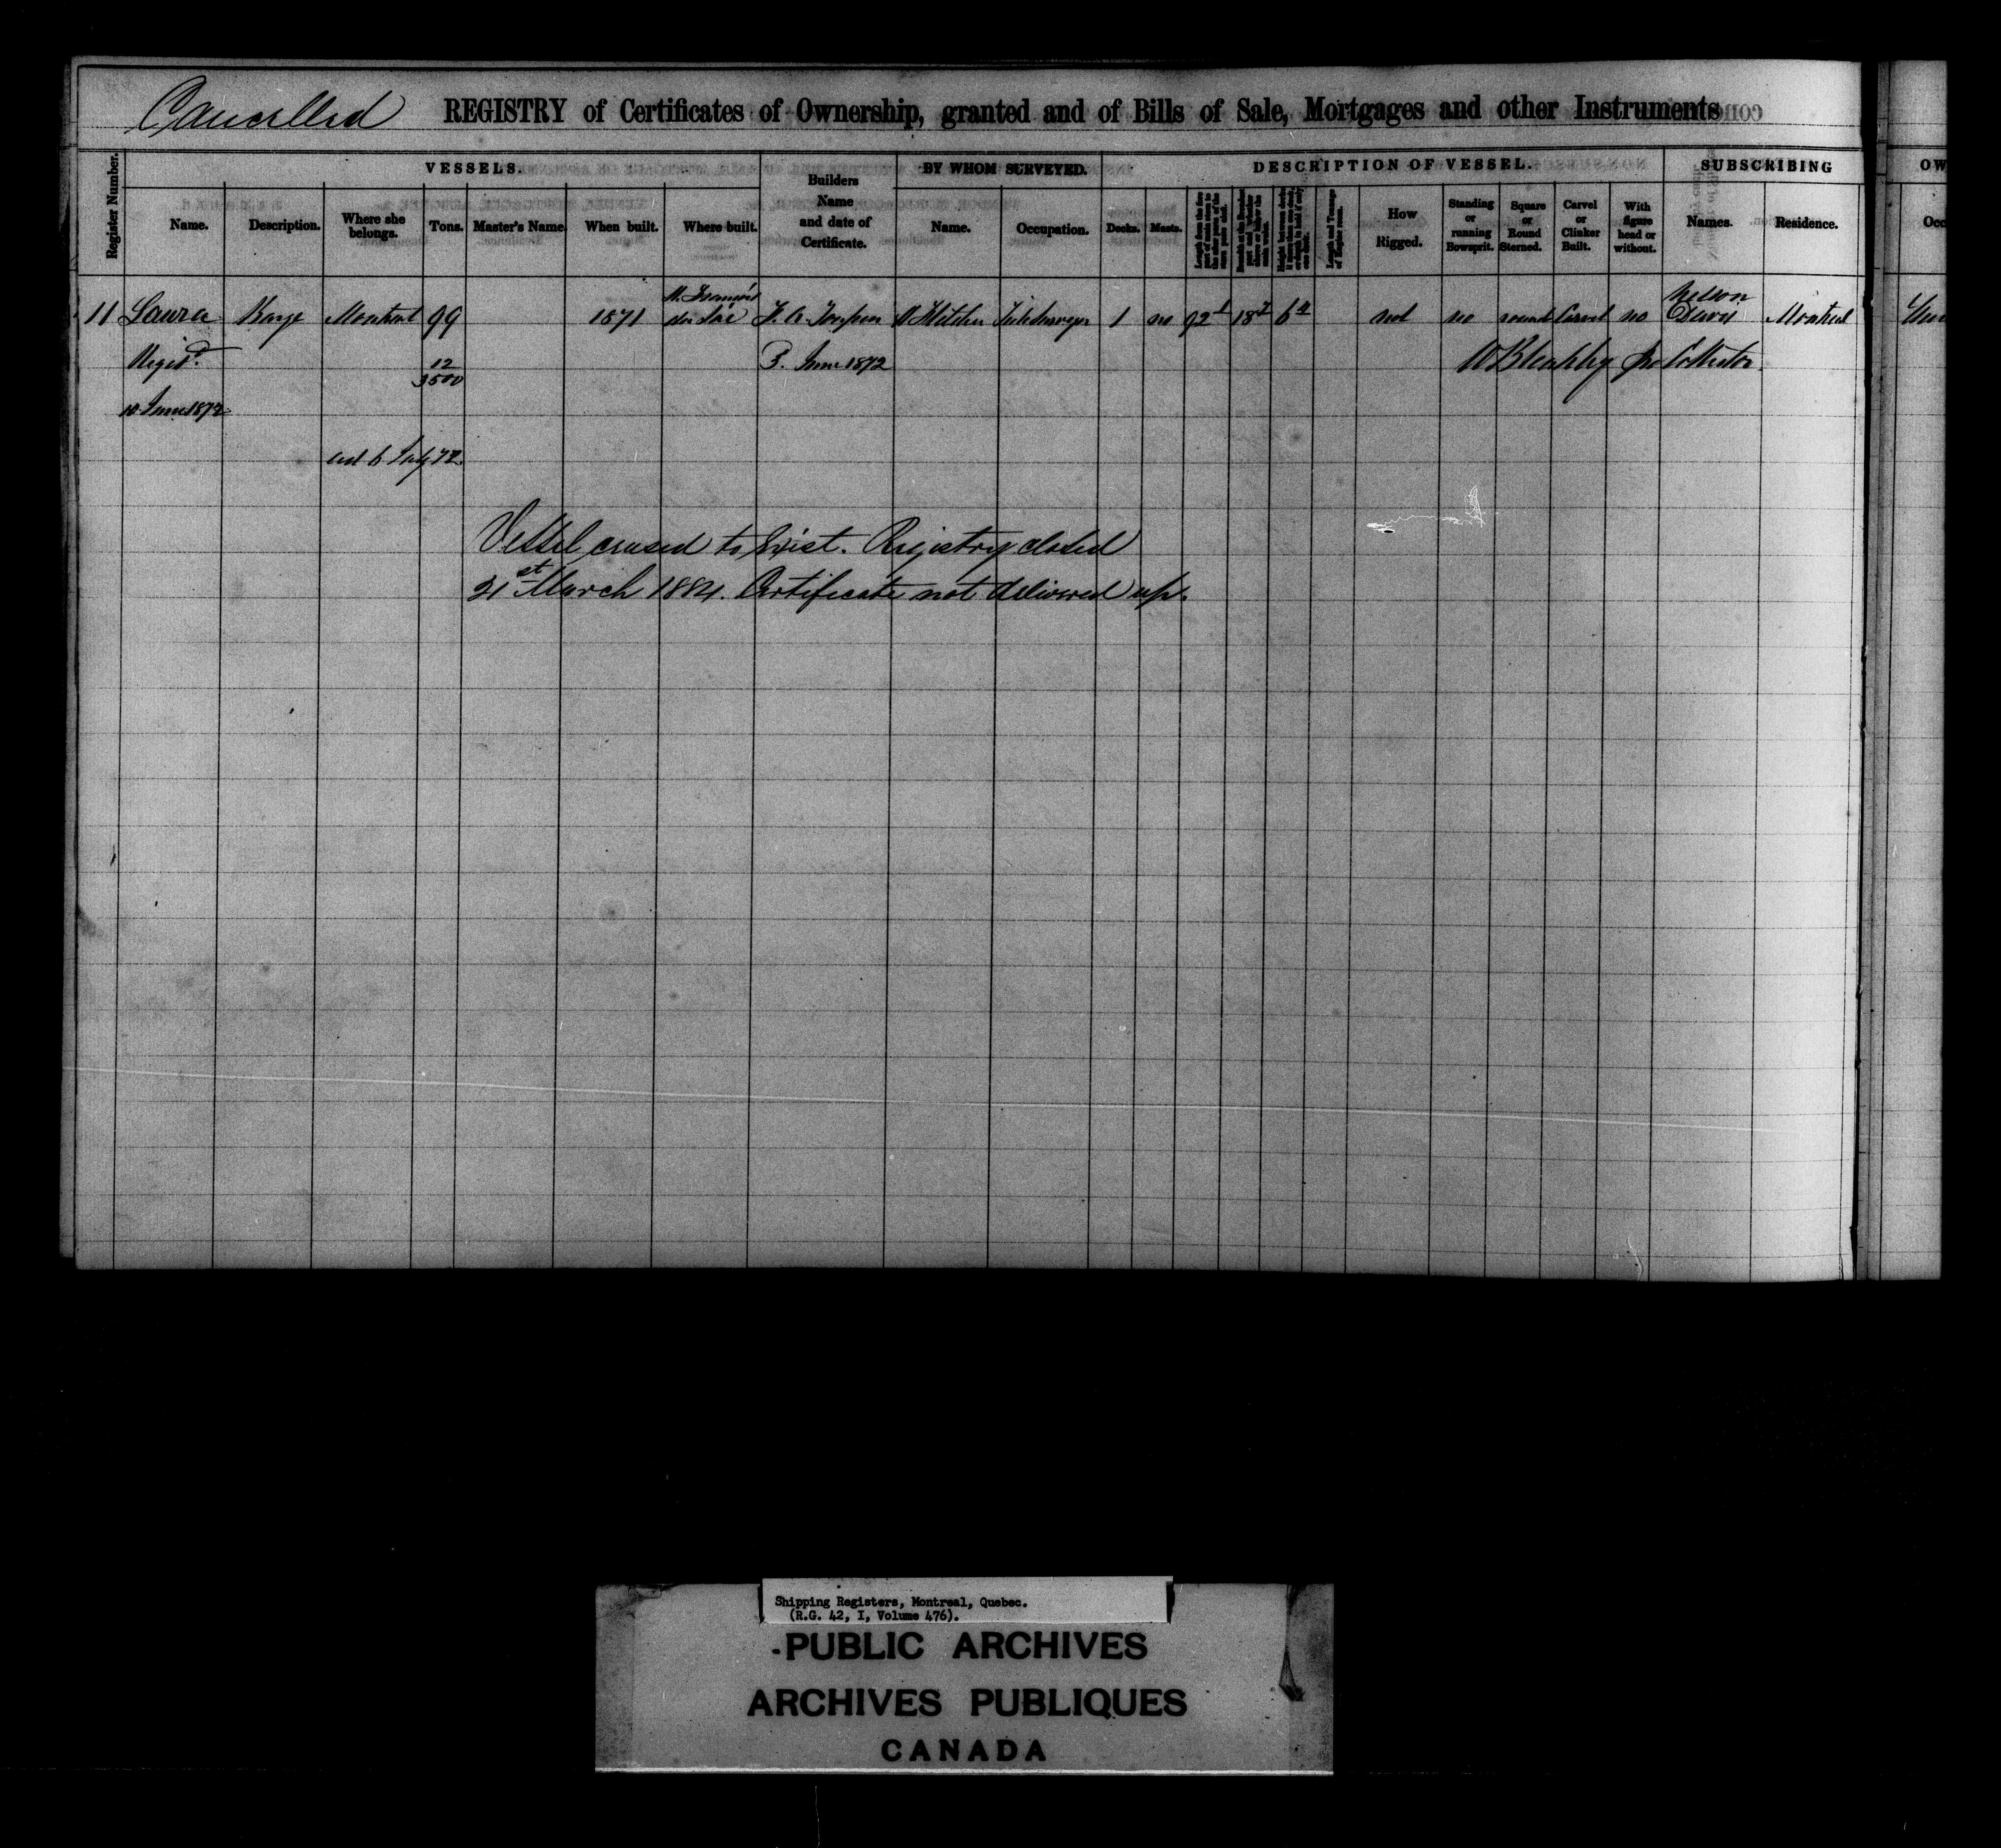 Cancelled REGISTRY of Certificates of Ownership, granted and of Bills of Sale, Mortgages and other Instruments
Register Number.
VESSELS.
Name. Description. Where she belongs. Tons. Master's Name. When built. Where built.
Builders Name and date of Certificate.
BY WHOM SURVEYED.
Name. Occupation.
DESCRIPTION OF VESSEL.
Decks. Masts.
How Rigged.
Standing or running Bowsprit.
Square or Round Sterned.
Carvel or Clinker Built.
With figure head or without.
SUBSCRIBING OW
Names. Residence. Occ
11 Laura Barge Montreal 99 1871 St. François du Lac 1 no 92 18 6 not no round Carvel no Nelson Davis Montreal
Regisd. 12/3500 3. June 1872
10 June 1872
6 July 72
Vessel ceased to exist. Registry closed
31st March 1884. Certificate not delivered up.
Shipping Registers, Montreal, Quebec.
(R.G. 42, I, Volume 476).
PUBLIC ARCHIVES
ARCHIVES PUBLIQUES
CANADA